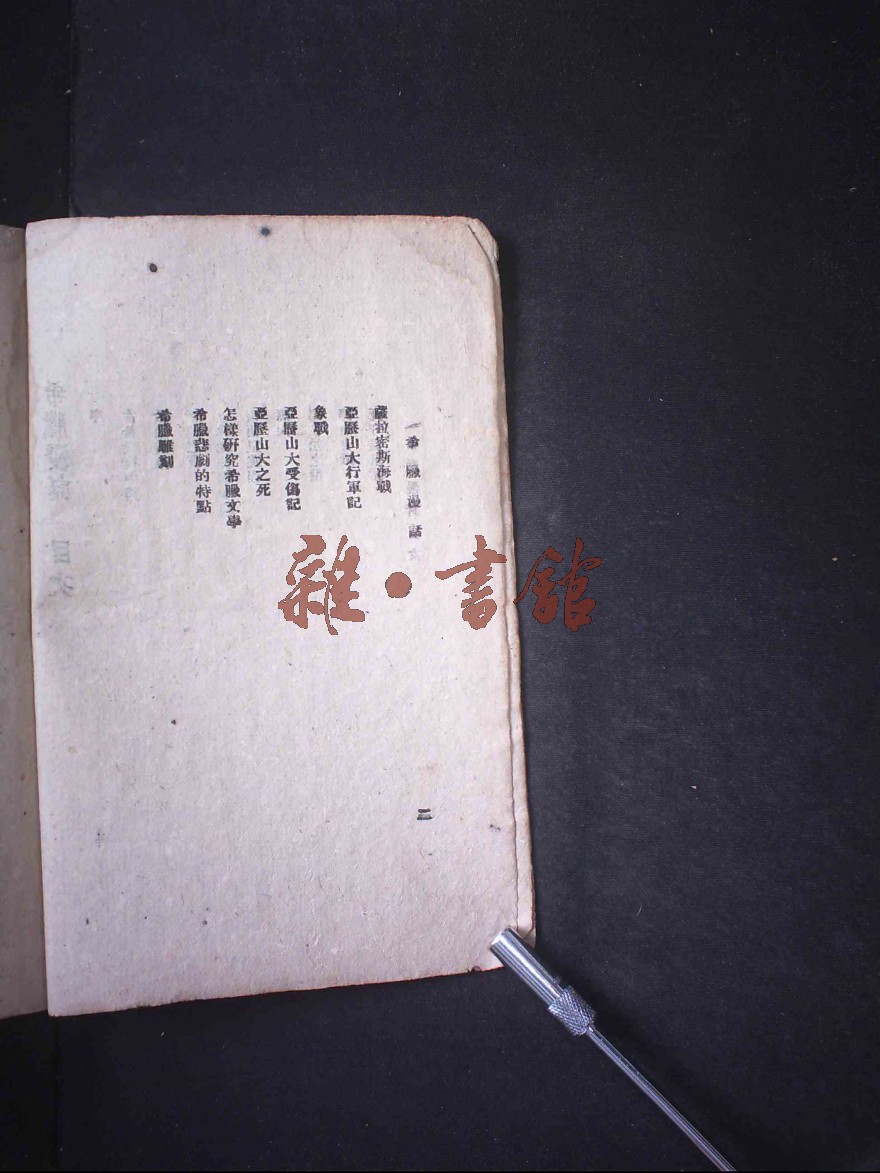 希臘漫話
薩拉密斯海戰
亞歷山大行軍記
象戰
亞歷山大受傷記
亞歷山大之死
怎樣研究希臘文學
希臘悲劇的特點
希臘雕刻
二
雜•書館